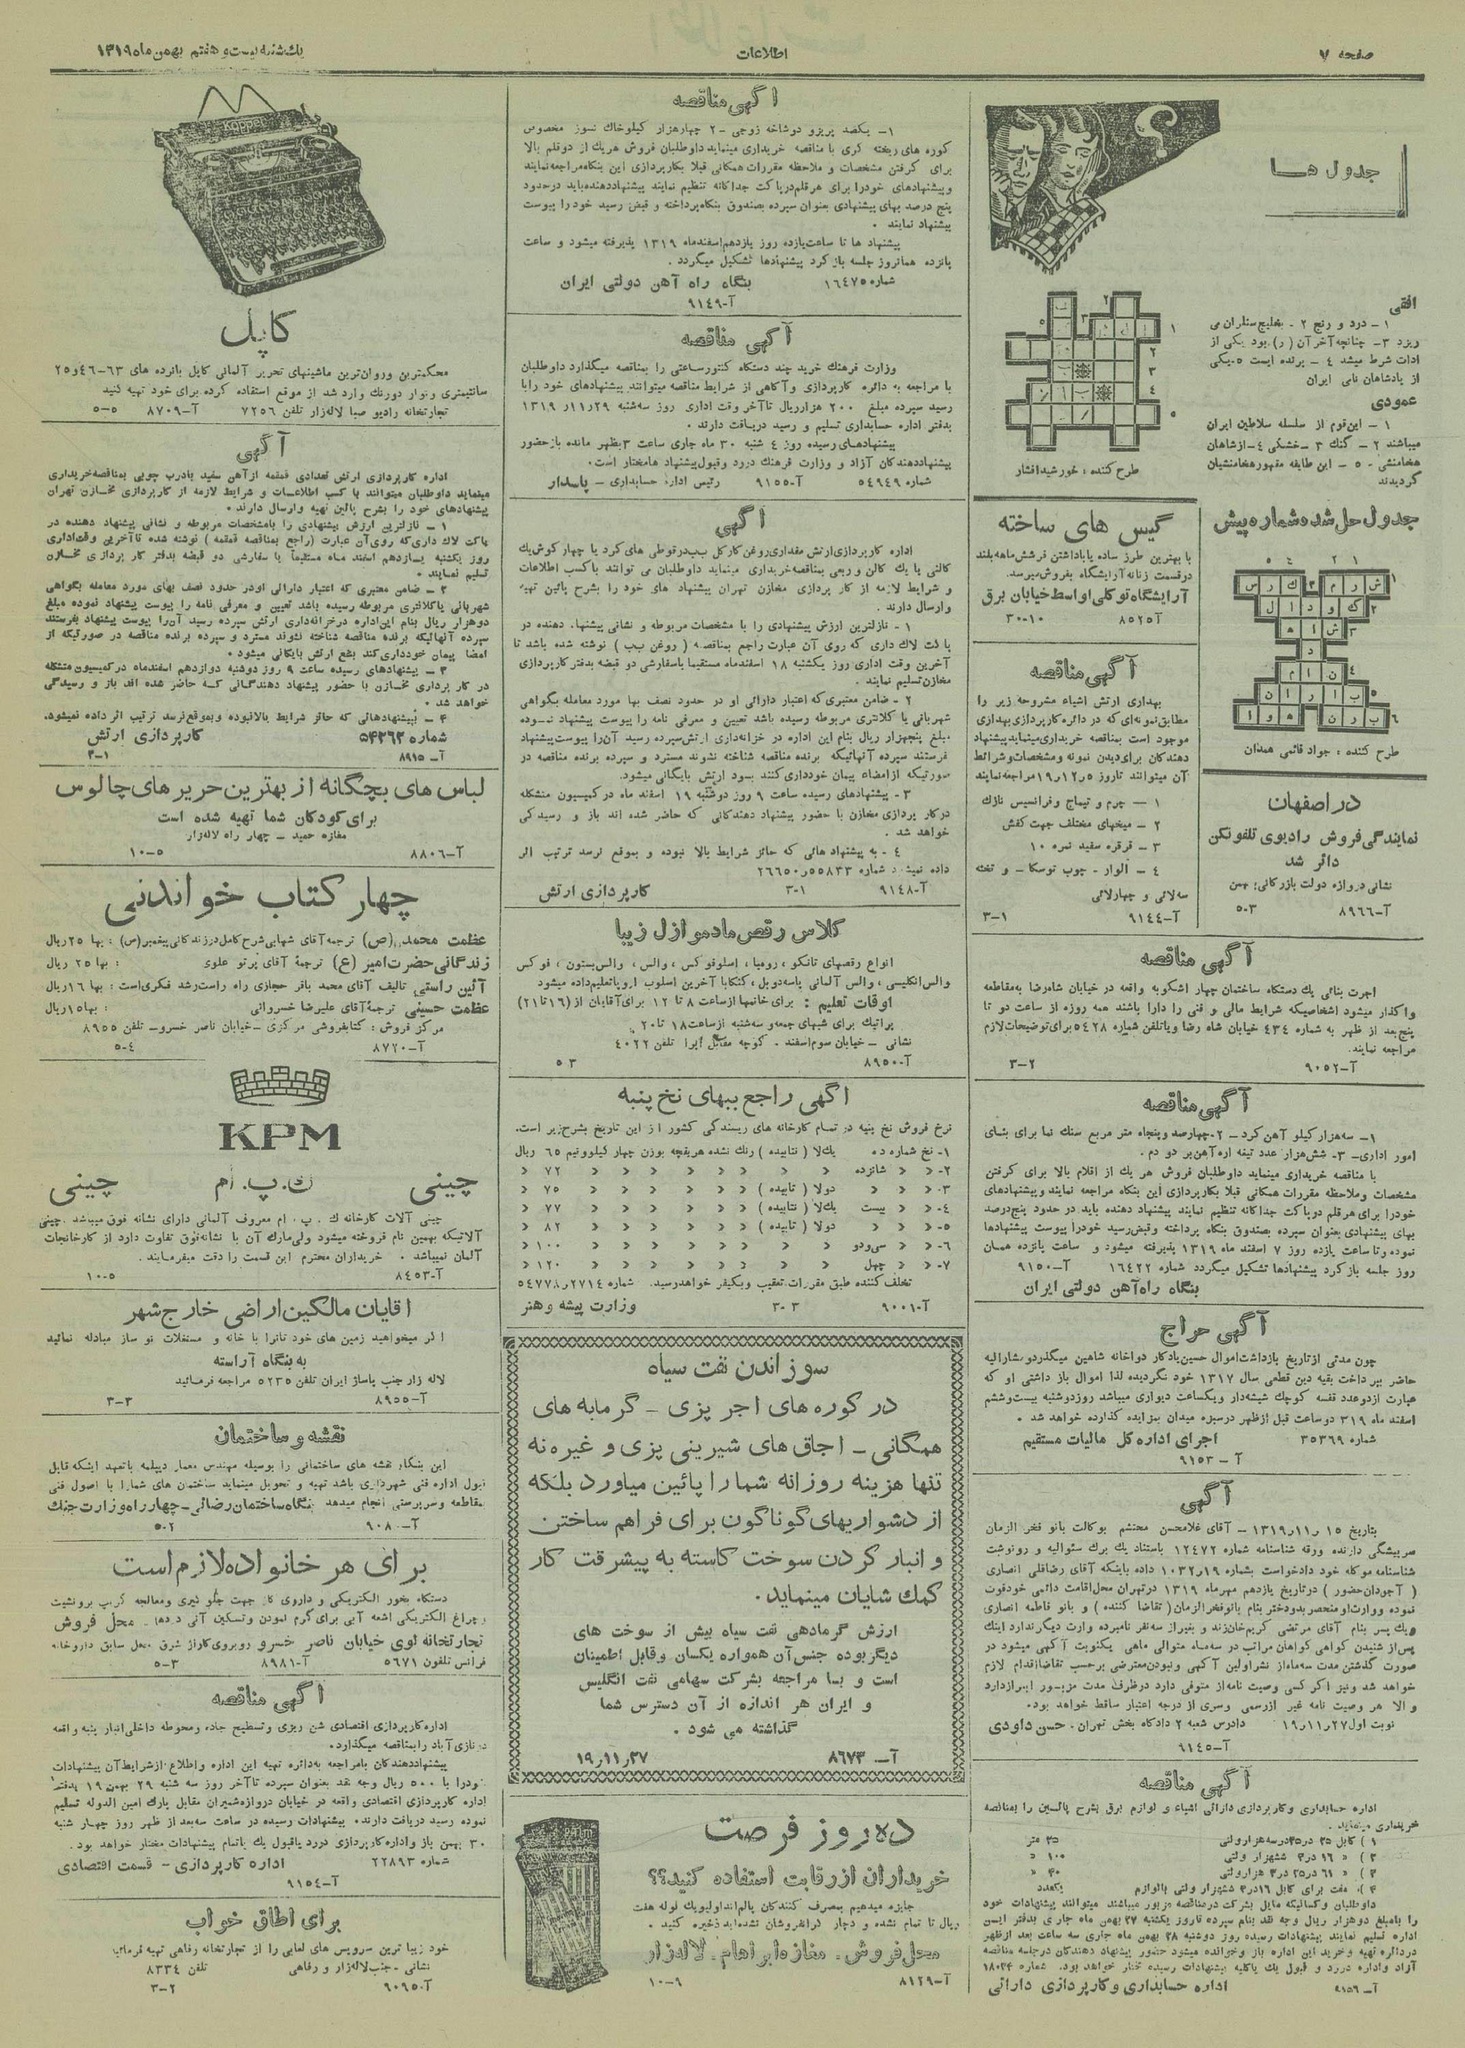 صفحه ۷
اطلاعات
یك‌شنبه بیست و هفتم بهمن ماه ۱۳۱۹
جدول ها
افقی
۱ - درد و رنج ۲ - بخلیج ستلران می
ریزد ۳- چنانچه آخر آن (ر) بود یکی از
ادات شرط میشد ٤ - برنده ایست ٥-یکی
از پادشاهان نامی ایران
عمودی
۱ - این قوم از سلسله سلاطین ایران
میباشند ۲ - گنك ۳ - خشکی ٤ - از شاهان
هخامنشی - ٥ - این طایفه مقهور هخامنشیان
گردیدند
طرح کننده : خورشید افشار
جدول حل شده شماره پیش
طرح کننده : جواد قائمی همدان
گیس های ساخته
با بهترین طرز ساده یا باداشتن فرشش ماهه بلند
در قسمت زنانه آرایشگاه بفروش میرسد.
آرایشگاه توکلی اواسط خیابان برق
آ-۸٥۲٥ ۱۰-۳۰
آگهی مناقصه
بهداری ارتش اشیاء مشروحه زیر را
مطابق نمونه‌ای که در دائره کارپردازی بهداری
موجود است بمناقصه خریداری مینماید پیشنهاد
دهندگان برای دیدن نمونه و مشخصات و شرائط
آن میتوانند تا روز ۱۹ر۱۲ر٥ مراجعه نمایند
۱ - چرم و تیماج و فرانسیس نازك
۲ - میخهای مختلف جهت کفش
۳ - قرقره سفید نمره ۱۰
٤ - الوار - چوب توسکا - و تخته
سه لائی و چهارلائی
آ-۹۱٤٤ ۱-۳
در اصفهان
نمایندگی فروش رادیوی تلفونکن
دائر شد
نشانی دروازه دولت بازرگانی: بهمن
آ-۸۹٦٦ ۳-٥
آگهی مناقصه
اجرت بنائی یك دستگاه ساختمان چهار اشکوبه واقعه در خیابان شاه‌رضا به مقاطعه
واگذار میشود اشخاصیکه شرایط مالی و فنی را دارا باشند همه روزه از ساعت دو تا
پنج بعد از ظهر به شماره ٤۳٤ خیابان شاه رضا و یا تلفن شماره ٥٤۲۸ برای توضیحات لازم
مراجعه نمایند.
آ-۹۰٥۲ ۲-۳
آگهی مناقصه
۱- سه هزار کیلو آهن گرد - ۲- چهارصد و پنجاه متر مربع سنك نما برای بنای
امور اداری - ۳- شش هزار عدد تیغه اره آهن‌بر دو دم .
با مناقصه خریداری مینماید داوطلبان فروش هر یك از اقلام بالا برای گرفتن
مشخصات و ملاحظه مقررات همکانی قبلا بکارپردازی این بنگاه مراجعه نمایند و پیشنهادهای
خود را برای هر قلم در پاکت جداگانه تنظیم نمایند پیشنهاد دهنده باید در حدود پنج‌درصد
بهای پیشنهادی بعنوان سپرده بصندوق بنگاه پرداخته و قبض رسید خود را پیوست پیشنهادها
نموده و تا ساعت یازده روز ۷ اسفند ماه ۱۳۱۹ پذیرفته میشود و ساعت پانزده همان
روز جلسه باز کرد پیشنهادها تشکیل میگردد شماره ۱٦٤۲۲ آ-۹۱٥۰
بنگاه راه آهن دولتی ایران
آگهی حراج
چون مدتی از تاریخ بازداشت اموال حسین یادکار دواخانه شاهین میگذرد و مشارالیه
حاضر بپرداخت بقیه دین قطعی سال ۱۳۱۷ خود نگردیده لذا اموال باز داشتی او که
عبارت از دو عدد قفسه کوچك شیشه‌دار و یکساعت دیواری میباشد روز دوشنبه بیست و ششم
اسفند ماه ۳۱۹ دو ساعت قبل از ظهر در سبزه میدان بمزایده گذارده خواهد شد .
شماره ۳٥۳٦۹ اجرای اداره کل مالیات مستقیم
آ-۹۱٥۳
آگهی
بتاریخ ۱٥ ر۱۱ر۱۳۱۹ - آقای غلامحسن محتشم بوکالت بانو فخر الزمان
دارنده ورقه شناسنامه شماره ۱۲٤۷۲ باستناد یك برك سئوالیه و رونوشت
شناسنامه موکله خود دادخواست بشماره ۱۹ر۱۰۳۲ داده باینکه آقای رضاقلی انصاری
( آجودان حضور ) در تاریخ یازدهم مهرماه ۱۳۱۹ در تهران محل اقامت دائمی خود فوت
نموده و وارث او منحصر بدو دختر بنام بانو فخر الزمان ( تقاضا کننده ) و بانو فاطمه انصاری
و یك پسر بنام آقای مرتضی کریم خان زند و بغیر از سه نفر نامبرده وارث دیگر ندارد اینك
پس از شنیدن گواهی گواهان مراتب در سه ماه متوالی ماهی یکنوبت آگهی میشود در
صورت گذشتن مدت سه ماه از نشر اولین آگهی و نبودن معترضی برحسب تقاضا اقدام لازم
خواهد شد و نیز اگر کسی وصیت نامه از متوفی دارد در ظرف مدت مزبور ابراز دارد
و الا هر وصیت نامه غیر از رسمی و سری از درجه اعتبار ساقط خواهد بود.
نوبت اول ۲۷ر۱۱ر۱۹ دادرس شعبه ۲ دادگاه بخش تهران . حسن داودی
آ-۹۱٤٥
آگهی مناقصه
اداره حسابداری و کارپردازی دارائی اشیاء و لوازم برق بشرح پائین را بمناقصه
خریداری مینماید .
۱ ) کابل ۳٥ در ۳٥ سه هزار ولتی ۳٥ متر
۲ ) » ۱٦ در ۳ ششهزار ولتی ۱۰۰ »
۳ ) » ۱٦ در ۲٥ در ۳ هزارولتی ۳۰ »
۴ ) مفت برای کابل ۱٦ در ۳ ششهزار ولتی بالوازم یکعدد
داوطلبان و کسانیکه مایل بشرکت در مناقصه مزبور میباشند میتوانند پیشنهادات خود
را بامبلغ دو هزار ریال وجه نقد بنام سپرده تا روز یکشنبه ۲۷ بهمن ماه جاری بدفتر این
اداره تسلیم نمایند پیشنهادات رسیده روز دوشنبه ۲۸ بهمن ماه جاری سه ساعت بعد از ظهر
در دائره تهیه و خرید این اداره باز و خوانده میشود حضور پیشنهاد دهندگان در جلسه مناقصه
آزاد و اداره در رد و قبول یك یا کلیه پیشنهادات رسیده مختار خواهد بود. شماره ۱۸۰۲۴
آ-۹۱٥٦ اداره حسابداری و کارپردازی دارائی
آگهی مناقصه
۱- یکصد پریز و دوشاخه زوجی - ۲ چهار هزار کیلو خاك نسوز مخصوص
کوره های ریخته گری با مناقصه خریداری مینماید داوطلبان فروش هر یك از دو قلم بالا
برای گرفتن مشخصات و ملاحظه مقررات همکانی قبلا بکارپردازی این بنگاه مراجعه نمایند
و پیشنهادهای خود را برای هر قلم در پاکت جداگانه تنظیم نمایند پیشنهاد دهنده باید در حدود
پنج درصد بهای پیشنهادی بعنوان سپرده بصندوق بنگاه پرداخته و قبض رسید خود را پیوست
پیشنهاد نمایند .
پیشنهاد ها تا ساعت یازده روز یازدهم اسفندماه ۱۳۱۹ پذیرفته میشود و ساعت
پانزده همانروز جلسه باز کرد پیشنهادها تشکیل میگردد .
شماره ۱٦٤۷٥ بنگاه راه آهن دولتی ایران
آ-۹۱٤۹
آگهی مناقصه
وزارت فرهنك خرید چند دستگاه کنتور ساعتی را بمناقصه میگذارد داوطلبان
با مراجعه به دائره کارپردازی و آگاهی از شرایط مناقصه میتوانند پیشنهادهای خود را با
رسید سپرده مبلغ ۲۰۰ هزار ریال تا آخر وقت اداری روز سه شنبه ۲۹ر۱۱ر۱۳۱۹
بدفتر اداره حسابداری تسلیم و رسید دریافت دارند .
پیشنهادهای رسیده روز ٤ شنبه ۳۰ ماه جاری ساعت ۳ بظهر مانده باز حضور
پیشنهاد دهندگان آزاد و وزارت فرهنك در رد و قبول پیشنهاد ها مختار است.
شماره ٥٤۹٤۹ آ-۹۱٥٥ رئیس اداره حسابداری - پاسدار
آگهی
اداره کارپردازی ارتش مقداری روغن کارکل ب ب در قوطی های گرد یا چهار گوش یك
گالنی یا یك گالن و ربعی بمناقصه خریداری مینماید داوطلبان می توانند با کسب اطلاعات
و شرایط لازمه از کار پردازی مخازن تهران پیشنهاد های خود را بشرح پائین تهیه
و ارسال دارند .
۱ - نازلترین ارزش پیشنهادی را با مشخصات مربوطه و نشانی پیشنهاد دهنده در
پاکت لاك داری که روی آن عبارت راجع بمناقصه ( روغن ب ب ) نوشته شده باشد تا
آخرین وقت اداری روز یکشنبه ۱۸ اسفندماه مستقیما یا سفارشی دو قبضه بدفتر کارپردازی
مخازن تسلیم نمایند .
۲ - ضامن معتبری که اعتبار دارائی او در حدود نصف بها مورد معامله بگواهی
شهربانی یا کلانتری مربوطه رسیده باشد تعیین و معرفی نامه را پیوست پیشنهاد نموده
مبلغ پنجهزار ریال بنام این اداره در خزانه‌داری ارتش سپرده رسید آن‌را پیوست پیشنهاد
فرستند سپرده آنهائیکه برنده مناقصه شناخته نشوند مسترد و سپرده برنده مناقصه در
صورتیکه از امضاء پیمان خودداری کنند بسود ارتش بایگانی میشود.
۳ - پیشنهادهای رسیده ساعت ۹ روز دوشنبه ۱۹ اسفند ماه در کمیسیون متشکله
در کار پردازی مخازن با حضور پیشنهاد دهندگانی که حاضر شده اند باز و رسیدگی
خواهد شد .
٤ - به پیشنهاد هائی که حائز شرایط بالا نبوده و بموقع نرسد ترتیب اثر
داده نمیشود شماره ٥٥۸۳۳ر۲٦٦٥۰
آ-۹۱٤۸ ۱-۳ کارپردازی ارتش
کلاس رقص مادموازل زیبا
انواع رقصهای تانگو ، رومبا ، اسلوفوکس ، والس ، والس‌بستون ، فوکس
والس انگلیسی ، والس آلمانی پاسه‌دوبل ، کنکابا آخرین اسلوب اروپا تعلیم داده میشود
اوقات تعلیم : برای خانمها از ساعت ۸ تا ۱۲ برای آقایان از (۱٦ تا ۲۱)
پراتیك برای شبهای جمعه و سه شنبه از ساعت ۱۸ تا ۲۰
نشانی - خیابان سوم اسفند . کوچه مقابل اپرا تلفن ٤۰۲۲
آ-۸۹٥۰ ۳ ٥
آگهی راجع ببهای نخ پنبه
نرخ فروش نخ پنبه در تمام کارخانه های ریسندگی کشور از این تاریخ بشرح زیر است.
۱- نخ شماره ده یك‌لا ( نتابیده ) رنك نشده هر بقچه بوزن چهار کیلو و نیم ٦٥ ریال
۲- » » شانزده » » ( » ) » » » » » ۷۲ »
۳- » » » دولا ( تابیده ) » » » » » ۷٥ »
٤- » » بیست یك‌لا ( نتابیده ) » » » » » ۷۷ »
٥- » » » دولا ( تابیده ) » » » » » ۸۲ »
٦- » » سی‌ودو » » » » » » » ۱۰۰ »
۷- » » چهل » » » » » » » ۱۲۰ »
تخلف کننده طبق مقررات تعقیب و بکیفر خواهد رسید. شماره ۲۷۱٤ر٥٤۷۷۸
آ-۹۰۰۱ ۳-۳ وزارت پیشه و هنر
سوزاندن نفت سیاه
در کوره های آجر پزی - گرمابه های
همگانی - اجاق های شیرینی پزی و غیره نه
تنها هزینه روزانه شما را پائین میاورد بلکه
از دشواریهای گوناگون برای فراهم ساختن
و انبار کردن سوخت کاسته به پیشرفت کار
کمك شایان مینماید.
ارزش گرمادهی نفت سیاه بیش از سوخت های
دیگر بوده جنس آن همواره یکسان و قابل اطمینان
است و بسا مراجعه بشرکت سهامی نفت انگلیس
و ایران هر اندازه از آن دسترس شما
گذاشته می شود .
آ-۸٦۷۳ ۲۷ر۱۱ر۱۹
ده روز فرصت
خریداران از رقابت استفاده کنید؟؟
جایزه میدهیم بمصرف کنندگان
ریال تا تمام نشده و دچار گرانفروشان نشده‌اید ذخیره کنید .
محل فروش . مغازه ابراهام . لاله‌زار
آ-۸۱۲۹ ۹-۱۰
Koppel
کاپل
محکمترین و روان‌ترین ماشینهای تحریر آلمانی کاپل بانرده های ٦۳-٤٦و۲٥
سانتیمتری و نوار دورنك وارد شد از موقع استفاده کرده برای خود تهیه کنید
تجارتخانه رادیو صبا لاله‌زار تلفن ۷۲٥٦ آ-۸۷۰۹ ٥-٥
آگهی
اداره کارپردازی ارتش تعدادی قمقمه از آهن سفید بادرب چوبی بمناقصه خریداری
مینماید داوطلبان میتوانند با کسب اطلاعات و شرایط لازمه از کارپردازی مخازن تهران
پیشنهادهای خود را بشرح پائین تهیه و ارسال دارند .
۱ - نازلترین ارزش پیشنهادی را بامشخصات مربوطه و نشانی پیشنهاد دهنده در
پاکت لاك داری که روی آن عبارت (راجع بمناقصه قمقمه ) نوشته شده تا آخرین وقت اداری
روز یکشنبه یازدهم اسفند ماه مستقیماً یا سفارشی دو قبضه بدفتر کار پردازی مخازن
تسلیم نمایند .
۲ - ضامن معتبری که اعتبار دارائی او در حدود نصف بهای مورد معامله بگواهی
شهربانی یا کلانتری مربوطه رسیده باشد تعیین و معرفی نامه را پیوست پیشنهاد نموده مبلغ
دو هزار ریال بنام این اداره در خزانه‌داری ارتش سپرده رسید آن‌را پیوست پیشنهاد بفرستند
سپرده آنهائیکه برنده مناقصه شناخته نشوند مسترد و سپرده برنده مناقصه در صورتیکه از
امضا پیمان خودداری کند بنفع ارتش بایگانی میشود .
۳ - پیشنهادهای رسیده ساعت ۹ روز دوشنبه دوازدهم اسفندماه در کمیسیون متشکله
در کار پردازی مخازن با حضور پیشنهاد دهندگانی که حاضر شده اند باز و رسیدگی
خواهد شد .
۴ - پیشنهادهائی که حائز شرایط بالا نبوده و بموقع نرسد ترتیب اثر داده نمیشود.
شماره ٥۴۲٦۲ کارپردازی ارتش
آ-۸۹۱٥ ۱-۳
لباس های بچگانه از بهترین حریر های چالوس
برای کودکان شما تهیه شده است
مغازه حمید - چهار راه لاله‌زار
آ-۸۸۰٦ ٥-۱۰
چهار کتاب خواندنی
عظمت محمد (ص) ترجمه آقای شهابی شرح کامل در زندگانی پیغمبر (ص) : بها ۲٥ ریال
زندگانی حضرت امیر (ع) ترجمهٔ آقای پرتو علوی : بها ۲٥ ریال
آئین راستی تالیف آقای محمد باقر حجازی راه راست رشد فکری است : بها ۱٦ ریال
عظمت حسینی ترجمهٔ آقای علیرضا خسروانی : بها ۱٥ ریال
مرکز فروش : کتابفروشی مرکزی - خیابان ناصر خسرو - تلفن ۸۹٥٥
آ-۸۷۲۰ ٤-٥
KPM
چینی ك . پ . ام چینی
چینی آلات کارخانه ك . پ . ام معروف آلمانی دارای نشانه فوق میباشد . چینی
آلاتیکه بهمین نام فروخته میشود ولی مارك آن با نشانه فوق تفاوت دارد از کارخانجات
آلمان نمیباشد . خریداران محترم این قسمت را دقت میفرمایند .
آ-۸٤٥۳ ٥-۱۰
آقایان مالکین اراضی خارج شهر
اگر میخواهید زمین های خودتانرا با خانه و مستغلات نو ساز مبادله نمائید
به بنگاه آراسته
لاله زار جنب پاساژ ایران تلفن ٥۲۳٥ مراجعه فرمائید
آ-۸۹٥٥ ۳-۳
نقشه و ساختمان
این بنگاه نقشه های ساختمانی را بوسیله مهندس معمار دیپلمه باتعهد اینکه قابل
قبول اداره فنی شهرداری باشد تهیه و تحویل مینماید ساختمان های شما را با اصول فنی
مقاطعه و سرپرستی انجام میدهد بنگاه ساختمان رضائی - چهار راه وزارت جنك
آ-۹۰۸۰ ۲-٥
برای هر خانواده لازم است
دستگاه بخور الکتریکی و داروی جهت جلوگیری و معالجه گریپ برونشیت
و چراغ الکتریکی اشعه آبی برای گرم نمودن و تسکین آنی درد . محل فروش
تجارتخانه خیابان ناصر خسرو روبروی محل سابق داروخانه
فرانس تلفون ٥٦۷۱ آ-۸۹۸۱ ۳-٥
آگهی مناقصه
اداره کارپردازی اقتصادی شن ریزی و تسطیح جاده و محوطه داخلی انبار پنبه واقعه
در نازی‌آباد را بمناقصه میگذارد.
پیشنهاد دهندگان بامراجعه به‌دائره تهیه این اداره و اطلاع از شرایط آن پیشنهادات
خودرا با ٥۰۰ ریال وجه نقد بعنوان سپرده تا آخر روز سه شنبه ۲۹ بهمن ۱۹ بدفتر
اداره کارپردازی اقتصادی واقعه در خیابان دروازه شمیران مقابل پارك امین الدوله تسلیم
نموده رسید دریافت دارند. پیشنهادات رسیده در ساعت سه‌بعد از ظهر روز چهار شنبه
۳۰ بهمن باز و اداره کارپردازی در رد یا قبول یك یا تمام پیشنهادات مختار خواهد بود .
شماره ۲۲۸۹۳ اداره کارپردازی - قسمت اقتصادی
آ-۹۱٥٤
برای اطاق خواب
خود زیبا ترین سرویس های لعابی را از تجارتخانه رفاهی تهیه فرمائید
نشانی - جنب لاله‌زار و رفاهی تلفن ۸۳۳٤
آ-۹۰۹٥ ۲-۳